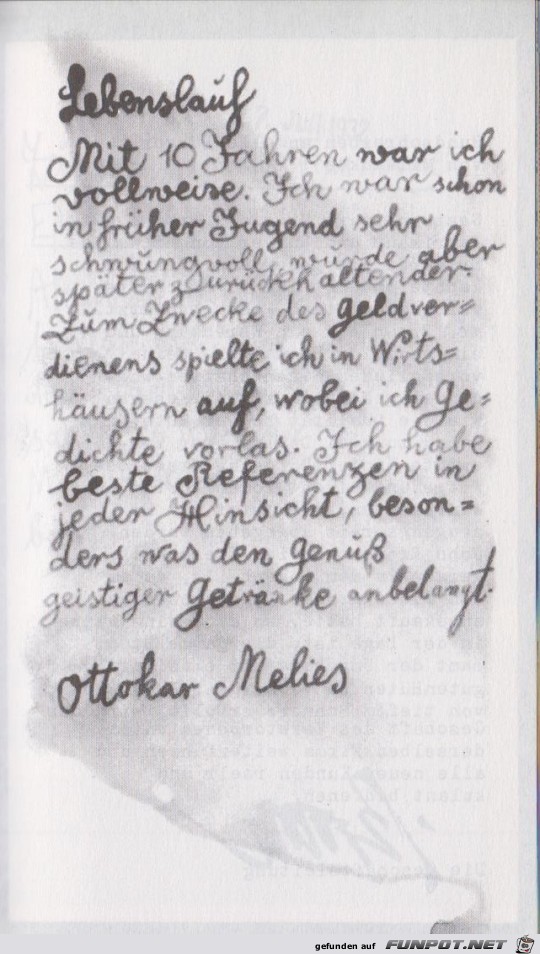 Lebenslauf
Mit 10 Jahren war ich
vollweise. Ich war schon
in früher Jugend sehr
schwungvoll, wurde aber
später zurückhaltender.
Zum Zwecke des Geldver=
dienens spielte ich in Wirts=
häusern auf, wobei ich Ge=
dichte vorlas. Ich habe
beste Referenzen in
jeder Hinsicht, beson=
ders was den Genuß
geistiger Getränke anbelangt.
Ottokar Melies
gefunden auf FUNPOT.NET